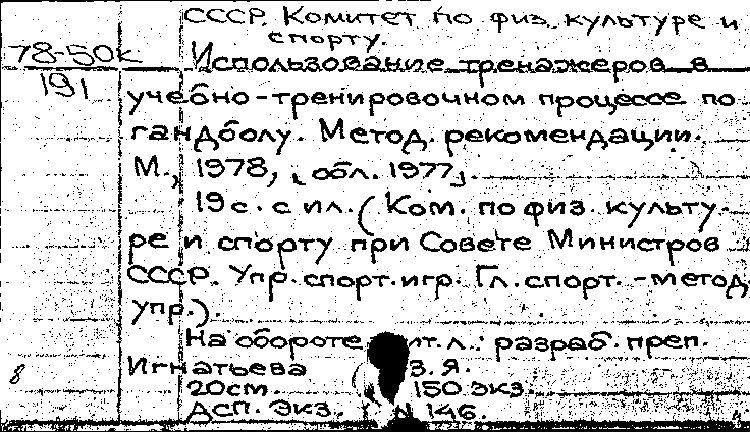 СССР. Комитет по физ. культуре и
спорту.
78-50к
Использование тренажеров в
191
учебно-тренировочном процессе по
гандболу. Метод. рекомендации.
М., 1978, [обл. 1977].
19с. с ил. (Ком. по физ. культу-
ре и спорту при Совете Министров
СССР. Упр. спорт. игр. Гл. спорт.-метод.
упр.).
На обороте тит. л.: разраб. преп.
Игнатьева В.Я.
20см. 150 экз.
8
Дсп. Экз. N 146.